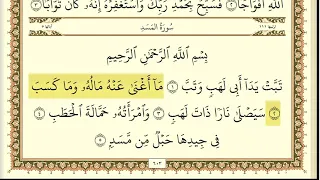 اللَّهِ أَفْوَاجًا ٢ فَسَبِّحْ بِحَمْدِ رَبِّكَ وَاسْتَغْفِرْهُ إِنَّهُ كَانَ تَوَّابًا ٣
سُورَةُ الْمَسَدِ
بِسْمِ اللَّهِ الرَّحْمَٰنِ الرَّحِيمِ
تَبَّتْ يَدَا أَبِي لَهَبٍ وَتَبَّ ١ مَا أَغْنَىٰ عَنْهُ مَالُهُ وَمَا كَسَبَ
٢ سَيَصْلَىٰ نَارًا ذَاتَ لَهَبٍ ٣ وَامْرَأَتُهُ حَمَّالَةَ الْحَطَبِ ٤
فِي جِيدِهَا حَبْلٌ مِّن مَّسَدٍ ٥
٦٠٣